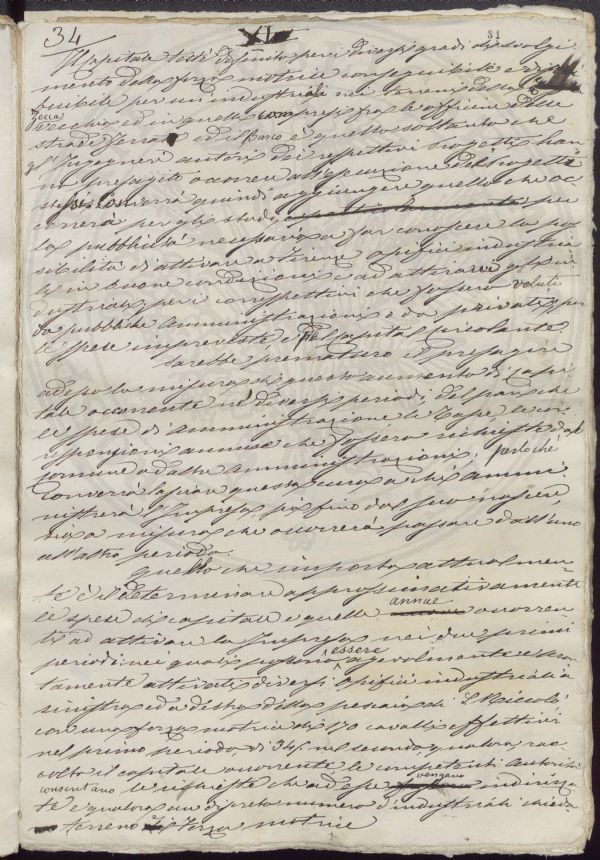 34 XI 31
Il Capitale testè definito pei diversi gradi di svolgi
mento della forza motrice conseguibile e
ducibile per usi industriali nei terreni della
Zecca Vecchia ed in quelli compresi fra le officine delle
strade ferrate ed il Barco è quello soltanto che
gl'Ingegneri autori dei respettivi progetti han
no presagito occorrere all'esecuzione del progetto
converrà quindi aggiungere quello che oc
correrà per gli studi, per
la pubblicità necessaria a far conoscere la pos
sibilità di attivare a Firenze opifici industria
li in buone condizioni ad attirare gl'in
dustriali, pei correspettivi che fossero voluti
da pubbliche Amministrazioni e da privati, per
le spese impreviste e pel Capitale circolante
Sarebbe prematuro il presagire
adesso la misura di questo aumento di Capi
tale occorrente ne' diversi periodi, del pari che
le spese di amministrazione le Tasse le cor
risponsioni annue che fossero richieste dal
comune o da altre amministrazioni; perlochè
converrà lasciare questa cura a chi ammini
strerà l'Impresa più fino dal suo nascere
sia a misura che occorrerà passare dall'uno
all'altro periodo.
Quello che importa attualmen
te è il determinare approssimativamente
le spese di capitale e quelle annue occorren
ti ad attivare la Impresa nei due primi
periodi nei quali possono essere agevolmente e
tamente attivati diversi opifici industriali a
sinistra ed a destra della pescaia di S. Niccolò
con una forza motrice di 170 cavalli effettivi
nel primo periodo, di 345 nel secondo, qualora rac
colto il capitale occorrente le competenti autorità
consentano le richieste che ad esse vengano indirizza
te e qualora un discreto numero d'industriali chieda
terreno e forza motrice